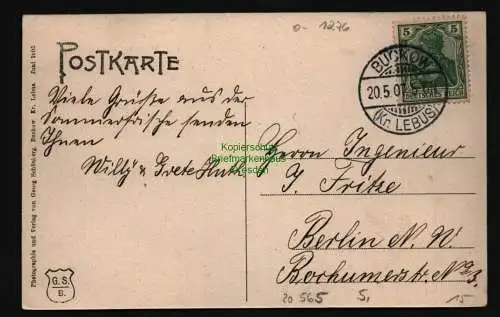 o- 1276
POSTKARTE
5 5
BUCKOW
20.5.07
(Kr. LEBUS)
Viele Grüsse aus der
Sommerfrische senden
Ihnen
Willy & Grete Huth
Kopierschutz
Briefmarkenhaus
Dresden
Herrn Ingenieur
J. Fritze
Berlin N. W.
Bochumerstr. No 3.
20 565 5, 15
Photographie und Verlag von Georg Schöning, Buckow Kr. Lebus.
G.S.
B.